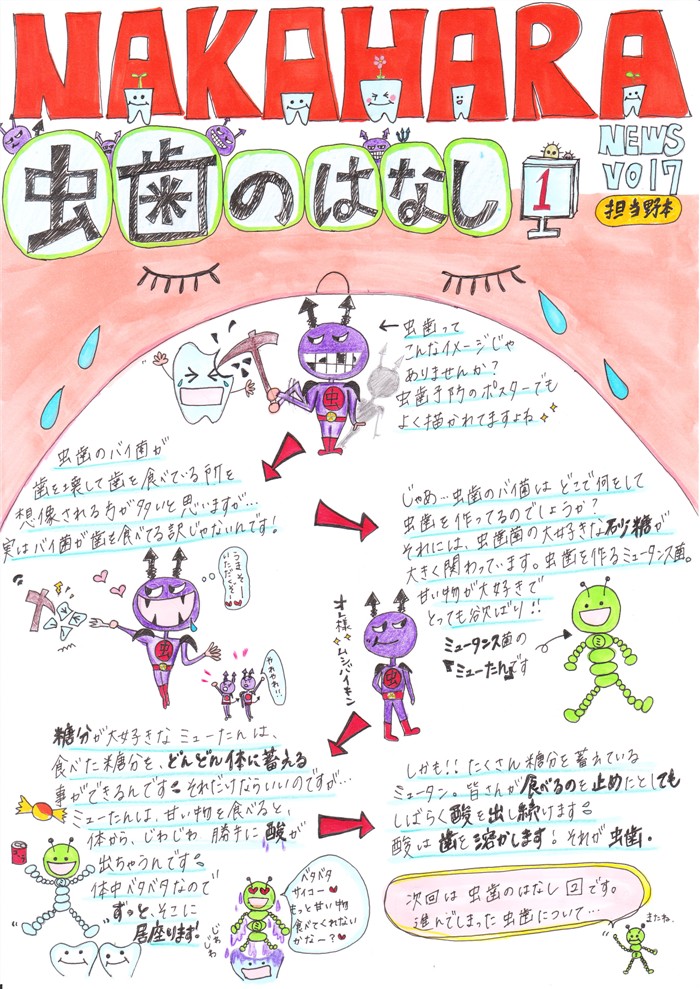 NAKAHARA
NEWS
VOl7
担当野本
虫歯のはなし
1
←虫歯って
こんなイメージじゃ
ありませんか？
虫歯予防のポスターでも
よく描かれてますよね
虫
虫歯のバイ菌が
歯を壊して歯を食べている所を
想像される方が多いと思いますが…
実はバイ菌が歯を食べてる訳じゃないんです！
じゃぁ…虫歯のバイ菌は どこで何をして
虫歯を作ってるのでしょうか？
それには、虫歯菌の大好きな砂糖が
大きく関わっています。虫歯を作るミュータンス菌。
甘い物が大好きで
とっても欲ばり！！
うまそー
いただくぞー
虫
やれやれ!!
オレ様
ムシバイキン
虫
ミュータンス菌の
『ミューたん』です
ミ
糖分が大好きな ミューたんは、
食べた糖分を、どんどん体に蓄える
事ができるんです。それだけならいいのですが…
ミューたんは、甘い物を食べると、
体から、じわじわ 勝手に酸が
出ちゃうんです。
体中ベタベタなので
ずっと、そこに
居座ります!
ベタベタ
サイコー
もっと甘い物
食べてくれない
かなー？
じわじわ
しかも!! たくさん糖分を蓄えている
ミュータン。皆さんが食べるのを止めたとしても
しばらく酸を出し続けます。
酸は歯を溶かします！それが虫歯。
次回は 虫歯のはなし②です。
進んでしまった虫歯について…
またね。